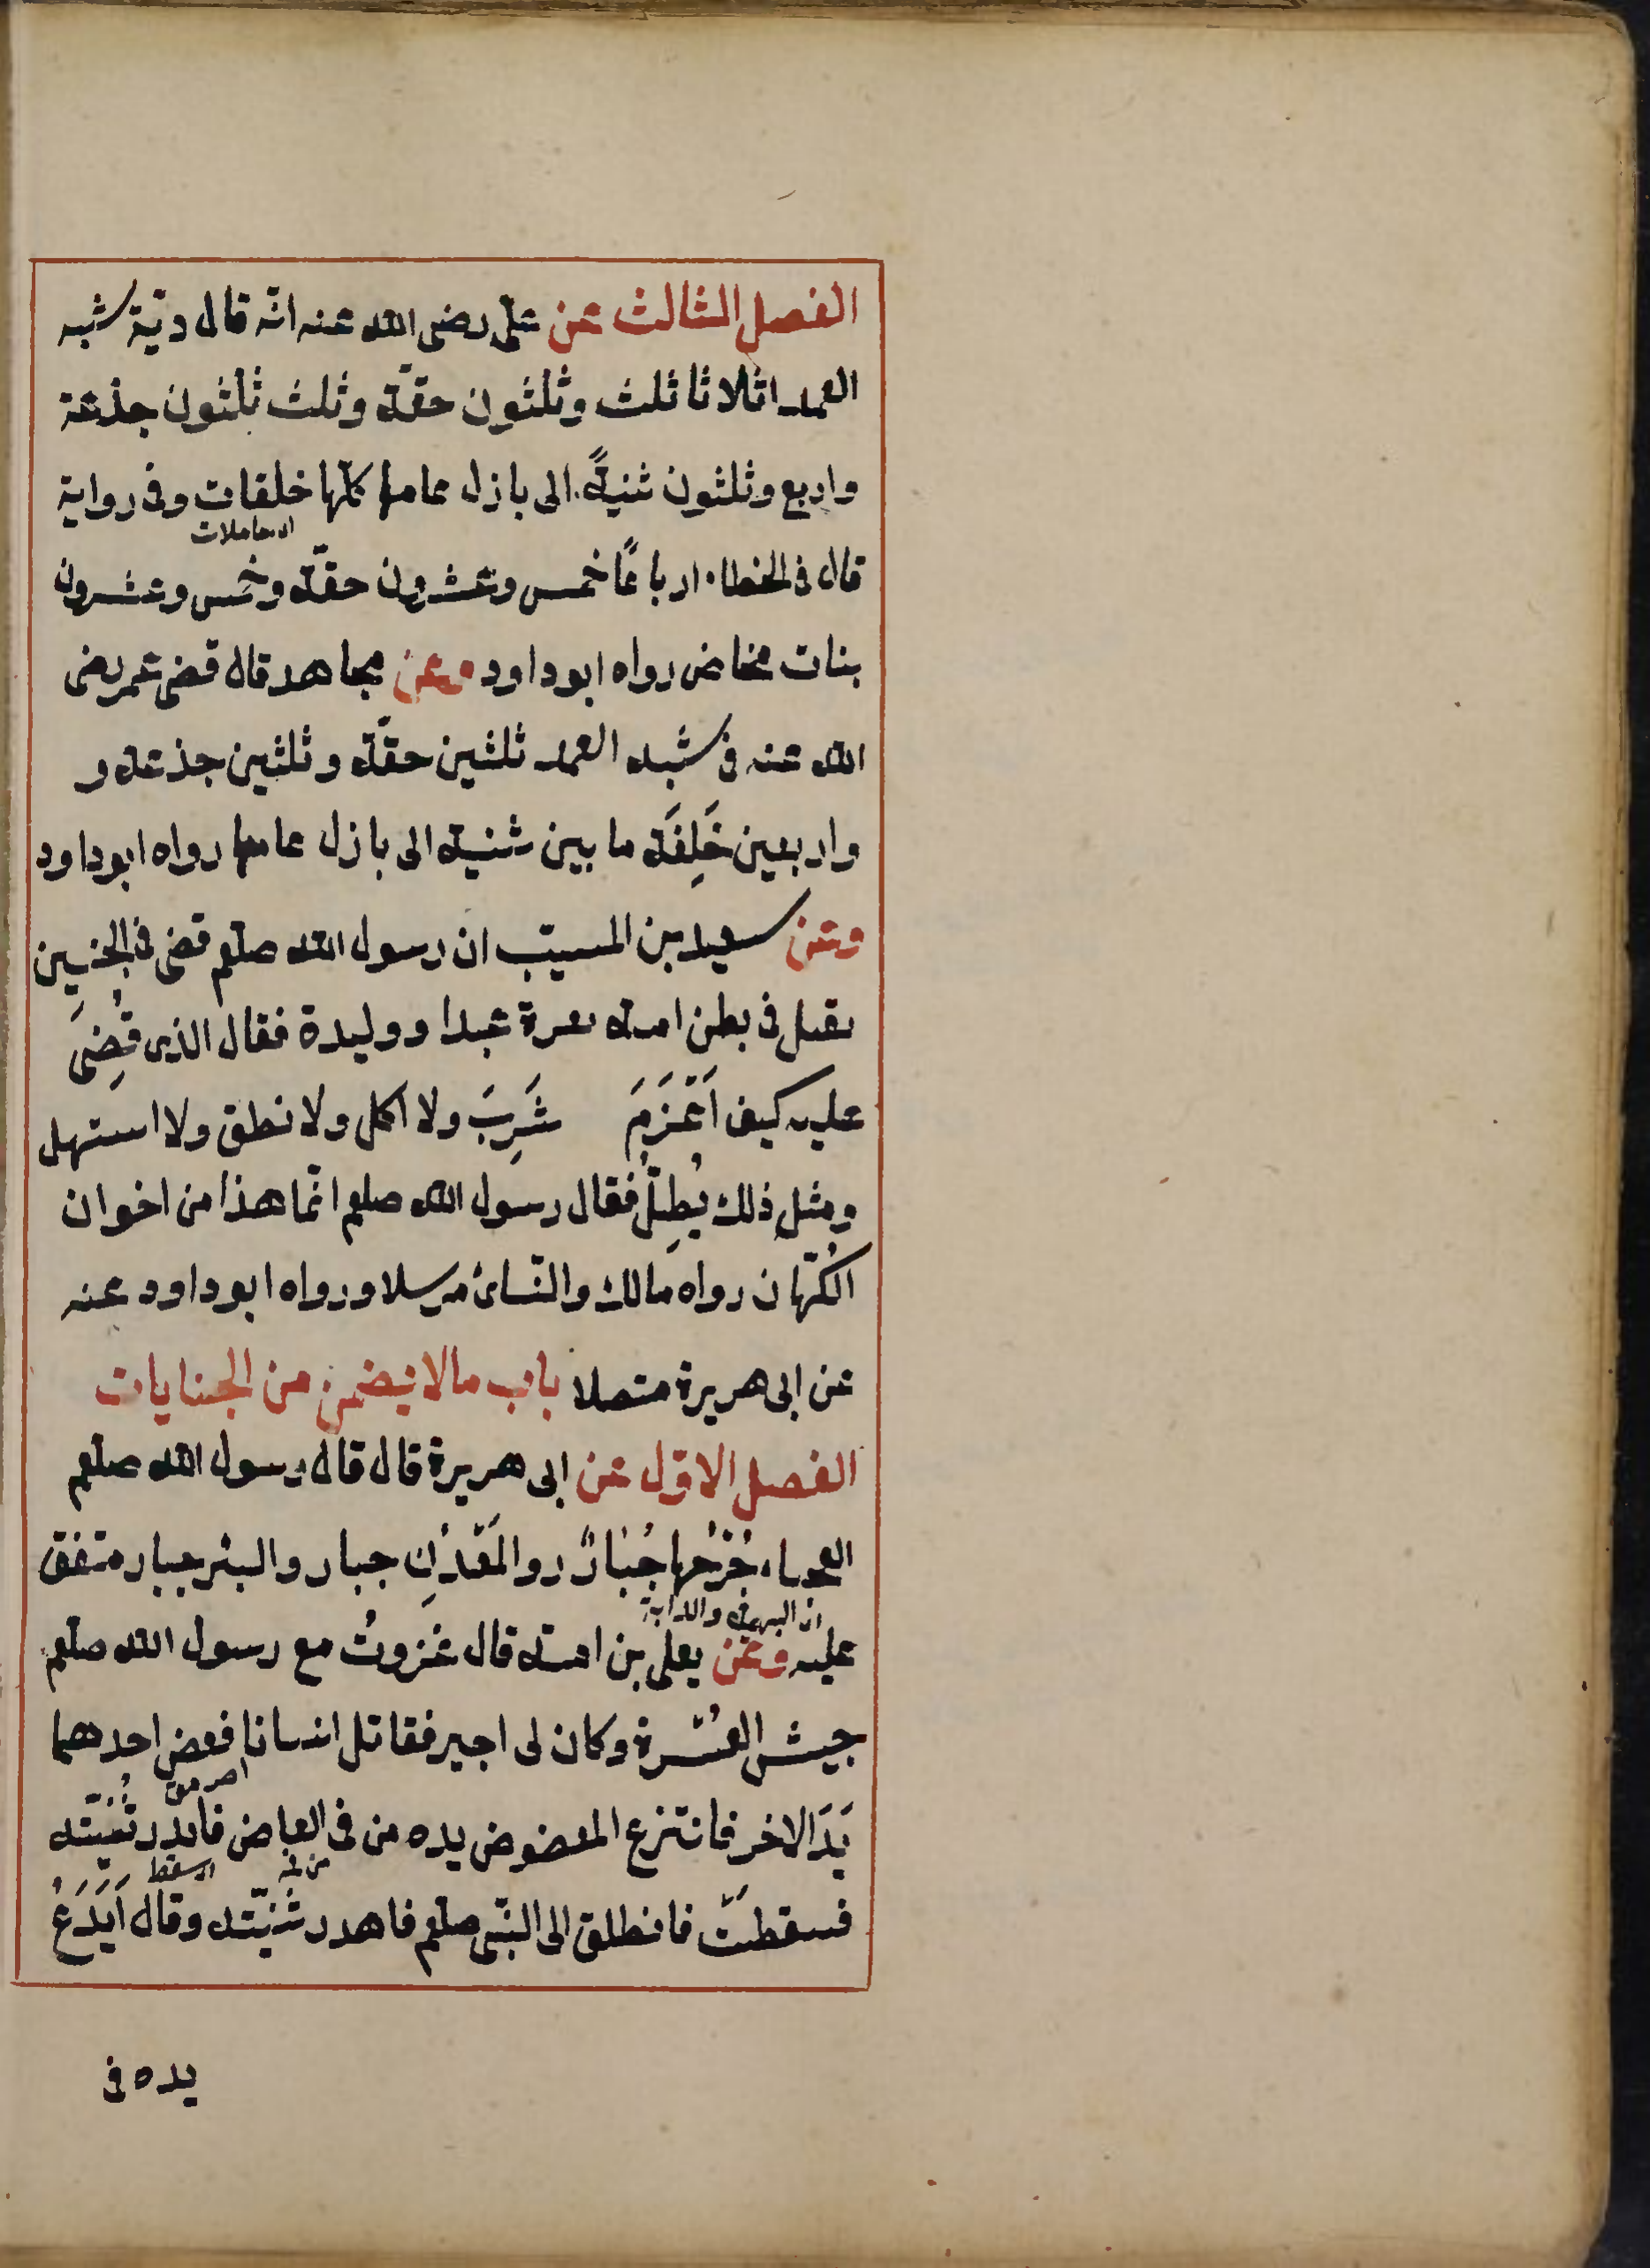 الفصل الثالث عن على رضى الله عنه انّه قال دية شبه
العمد اثلاثا ثلث وثلثون حقّة وثلث ثلثون جذعة
واربع وثلثون ثنيةً الى بازل عامها كلّها خلقات وفى رواية
اى حاملات
قال فى الخطاء ارباعًا خمس وعشرون حقّة وخمس وعشرون
بنات مخاض رواه ابوداود وعن مجاهد قال قضى عمر رضى
الله عنه فى شبه العمد ثلثين حقّة وثلثين جذعة و
واربعين خَلِفَة ما بين ثنية الى بازل عامها رواه ابوداود
وعن سعيد بن المسيّب ان رسول الله صلعم قضى فى الجنين
يقتل فى بطن امه بغرة عبدا ووليدة فقال الذى قُضِىَ
عليه كيف اَغْرَمَ شَرِبَ ولا اكل ولا نطق ولا استهل
ومثل ذلك يُطِلُّ فقال رسول الله صلعم انّما هذا من اخوان
الكُهّان رواه مالك والنّسائ مرسلا ورواه ابوداود عنه
عن ابى هريرة متصلا باب مالا يضمن من الجنايات
الفصل الاوّل عن ابى هريرة قال قال رسول الله صلعم
العجماء جُرْحُها جُبَارٌ والمَعْدَنِ جبار والبئر جبار متفق
اى البهيمة والدابة
عليه وعن يعلى بن امية قال غزوتُ مع رسول الله صلعم
جيش العُسْرة وكان لى اجير فقاتل انسانا فعض احدهما
يَدَ الاخر فانتزع المعضوض يده من فى العاض فاندر ثَنيّته
من فمه اى سقط
فسقطتّ فانطلق الى النبّى صلعم فاهدر ثنيّته وقال اَيَدَعُ
يده فى